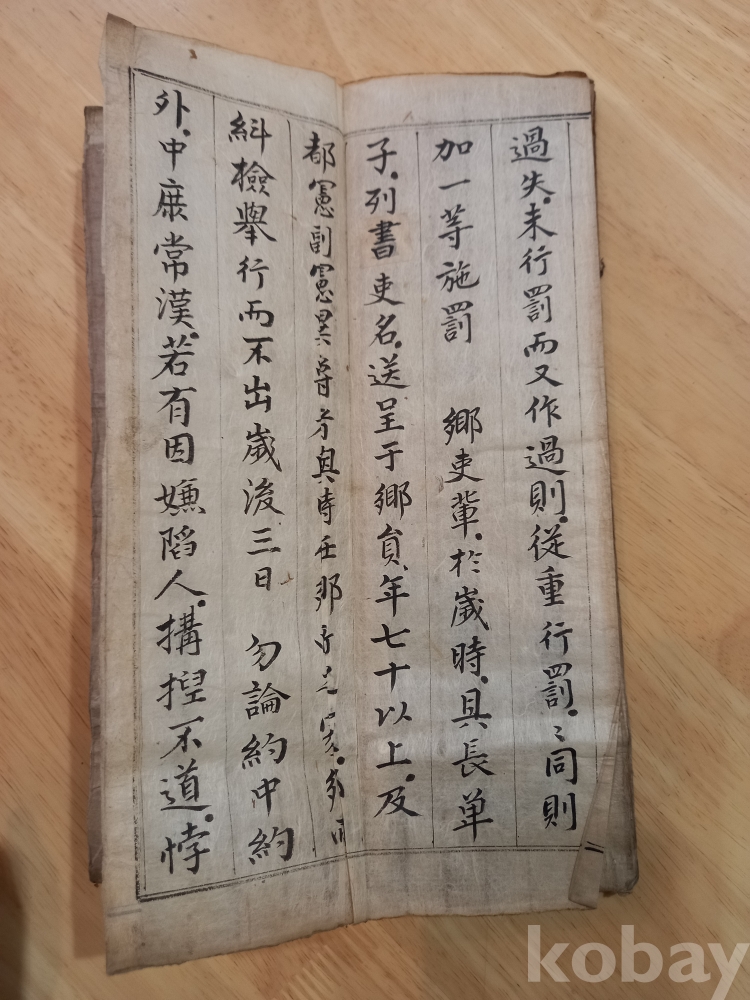 過失未行罰而又作過則從重行罰〻同則
加一等施罰 鄉吏輩於歲時具長单
子列書吏名送呈于鄉員年七十以上及
都憲副憲
糾檢擧行而不出歲後三日 勿論約中約
外中庶常漢若有因嫌陷人搆捏不道悖
kobay